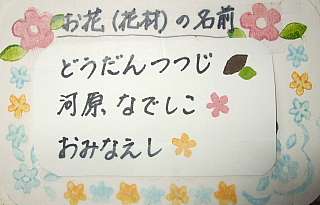 お花(花材)の名前
どうだんつつじ
河原なでしこ
おみなえし